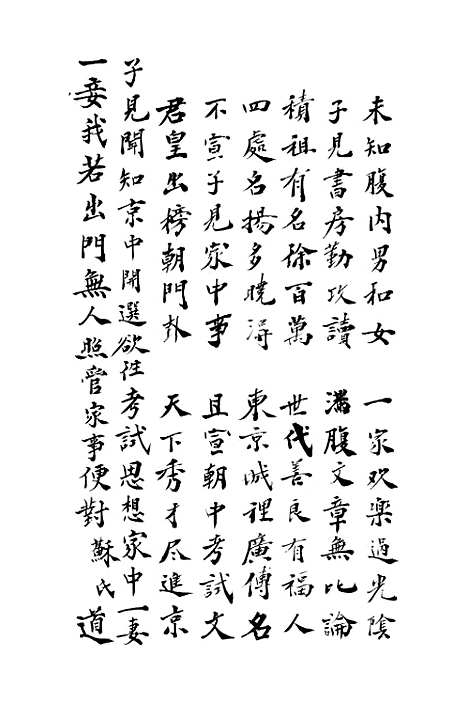 未知腹内男和女 一家欢樂過光陰
子見書房勤攻讀 滿腹文章無比論
積祖有名徐百萬 世代善良有福人
四處名揚多曉淂 東京城裡廣傳名
不宣子見家中事 且宣朝中考試文
君皇出榜朝門卦 天下秀才尽進京
子見聞知京中開選欲往考試思想家中一妻
一妾我若出門無人照管家事便對蘇氏道